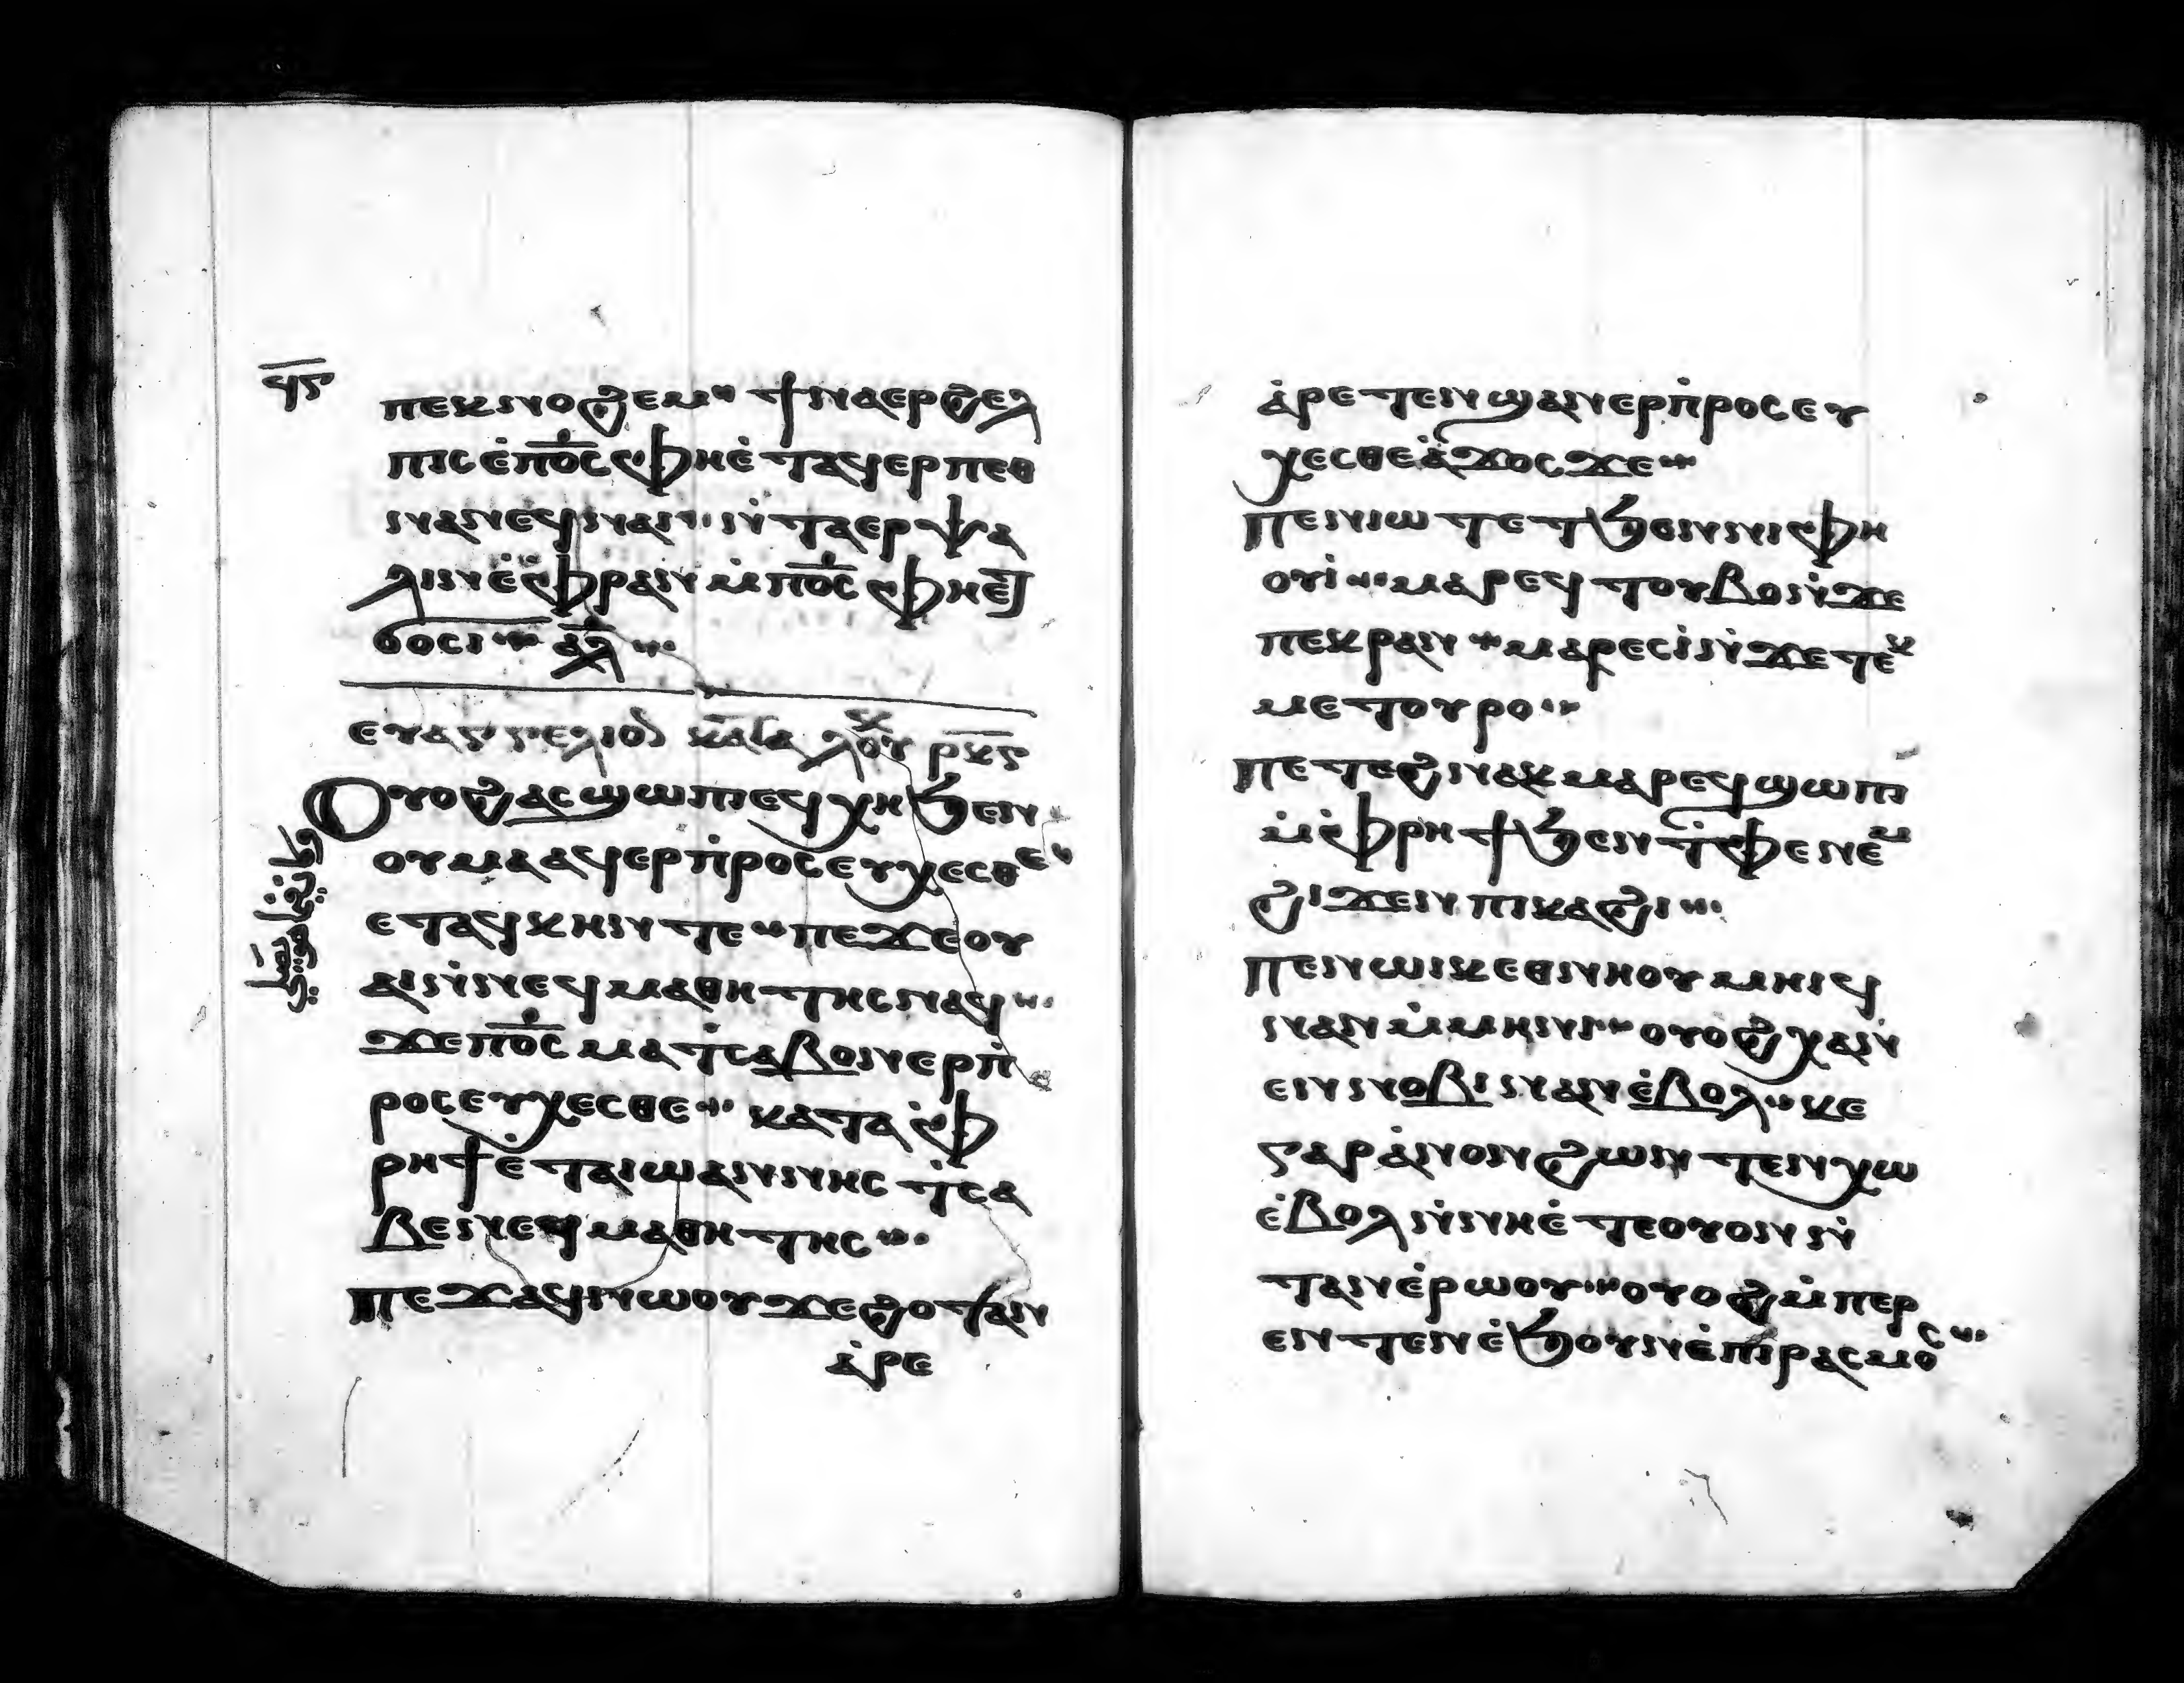 ϥⲋ
ⲡⲉⲕⲛⲟϩⲉⲙ ϯⲛⲁⲉⲣϩⲉⲗ
ⲡⲓⲥ ⲉ̇ⲡ⳪ ⲫⲏⲉ̇ⲧⲁϥⲉⲣⲡⲉⲑ
ⲛⲁⲛⲉϥ ⲛⲁⲛ ⲛ̇ⲧⲁⲉⲣⲯⲁ
ⲗⲓⲛ ⲉ̇ⲫ̇ⲣⲁⲛ ⲙ̇ⲡ⳪ ⲫⲏⲉⲧ
ϭⲟⲥⲓ ⲁ̅ⲗ̅
ⲉⲩⲁⲅⲅⲉⲗⲓⲟⲛ ⲕⲁⲧⲁ ⲗⲟⲩⲕ ⲣⲕⲋ
Ⲟⲩⲟϩ ⲁⲥϣⲱⲡⲓ ⲉϥⲭⲏ ϧⲉⲛ
ⲟⲩⲙⲁ ⲁϥⲉⲣⲡ̇ⲣⲟⲥⲉⲩⲭⲉⲥⲑⲉ
ⲉⲧⲁϥⲕⲏⲛ ⲧⲉ ⲡⲉϫⲉ ⲟⲩ
ⲁⲓ ⲛ̇ⲛⲉϥⲙⲁⲑⲏⲧⲏⲥ ⲛⲁϥ
ϫⲉ ⲡ⳪ ⲙⲁⲧ̇ⲥⲁⲃⲟⲛ ⲉⲣⲡ̇
ⲣⲟⲥⲉⲩⲭⲉⲥⲑⲉ ⲕⲁⲧⲁ ⲫ̇
ⲣⲏϯ ⲉ̇ⲧⲁ ⲓⲱⲁⲛⲛⲏⲥ ⲧ̇ⲥⲁ
ⲃⲉ ⲛⲉϥⲙⲁⲑⲏⲧⲏⲥ
ⲡⲉϫⲁϥ ⲛⲱⲟⲩ ϫⲉ ϩⲟⲧⲁⲛ
ⲁ̇ⲣⲉ
ⲁ̇ⲣⲉⲧⲉⲛϣⲁⲛⲉⲣⲡ̇ⲣⲟⲥⲉⲩ
ⲭⲉⲥⲑⲉ ⲁ̇ϫⲟⲥ ϫⲉ
ⲡⲉⲛⲓⲱⲧ ⲉⲧϧⲉⲛ ⲛⲓⲫⲏ
ⲟⲩⲓ̇ ⲙⲁⲣⲉϥⲧⲟⲩⲃⲟ ⲛ̇ϫⲉ
ⲡⲉⲕⲣⲁⲛ ⲙⲁⲣⲉⲥⲓ̇ ⲛ̇ϫⲉ ⲧⲉⲕ
ⲙⲉⲧⲟⲩⲣⲟ
ⲡⲉⲧⲉϩⲛⲁⲕ ⲙⲁⲣⲉϥϣⲱⲡⲓ
ⲙ̇ⲫ̇ⲣⲏϯ ϧⲉⲛ ⲧ̇ⲫⲉ ⲛⲉⲙ
ϩⲓϫⲉⲛ ⲡⲓⲕⲁϩⲓ
ⲡⲉⲛⲱⲓⲕ ⲉⲑⲛⲏⲟⲩ ⲙⲏⲓϥ
ⲛⲁⲛ ⲙ̇ⲙⲏⲛⲓ ⲟⲩⲟϩ ⲭⲁ ⲛ̇
ⲉⲛⲛⲟⲃⲓ ⲛⲁⲛ ⲉ̇ⲃⲟⲗ ⲕⲉ
ⲅⲁⲣ ⲁ̇ⲛⲟⲛ ϩⲱⲛ ⲧⲉⲛⲭⲱ
ⲉ̇ⲃⲟⲗ ⲛ̇ⲛⲏⲉ̇ⲧⲉ ⲟⲩⲟⲛ ⲛ̇
ⲧⲁⲛ ⲉ̇ⲣⲱⲟⲩ ⲟⲩⲟϩ ⲙ̇ⲡⲉⲣ
ⲉⲛⲧⲉⲛ ⲉ̇ϧⲟⲩⲛ ⲉ̇ⲡⲓⲣⲁⲥⲙⲟⲥ